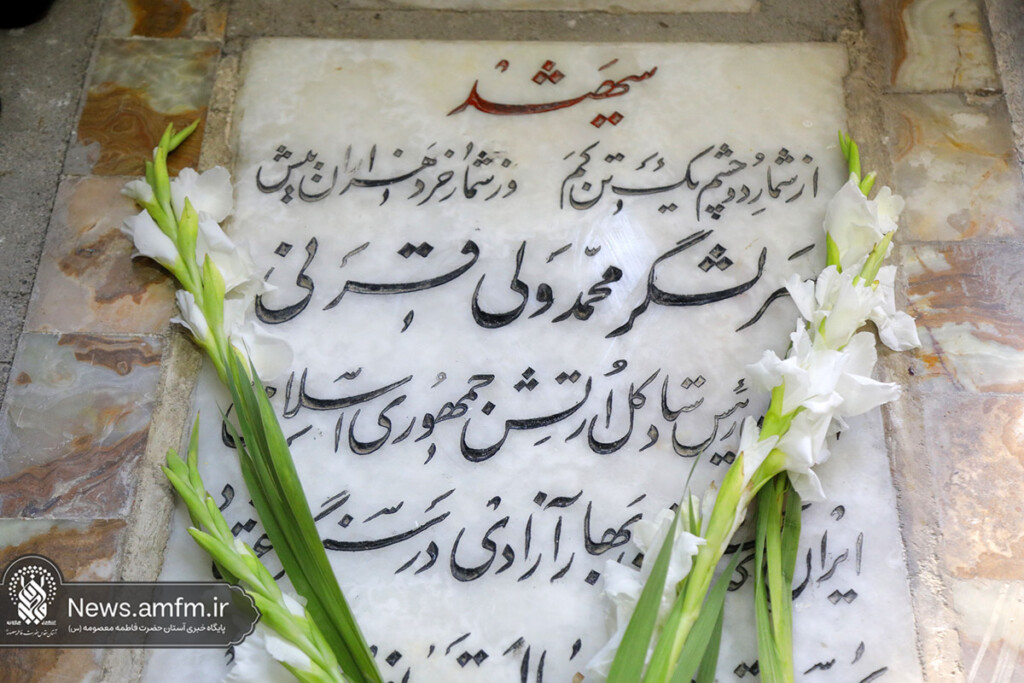 شهید
از شمار دو چشم یک تن کم وز شمار خرد هزاران بیش
سرلشگر محمد ولی قرنی
رئیس ستاد کل ارتش جمهوری اسلامی
ایران
بهار آزادی در سنگر
News.amfm.ir
پایگاه خبری آستان حضرت فاطمه معصومه (س)